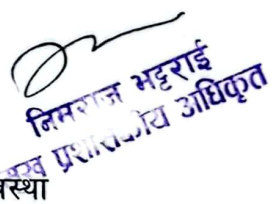 निमराज भट्टराई
प्रशासकीय अधिकृत